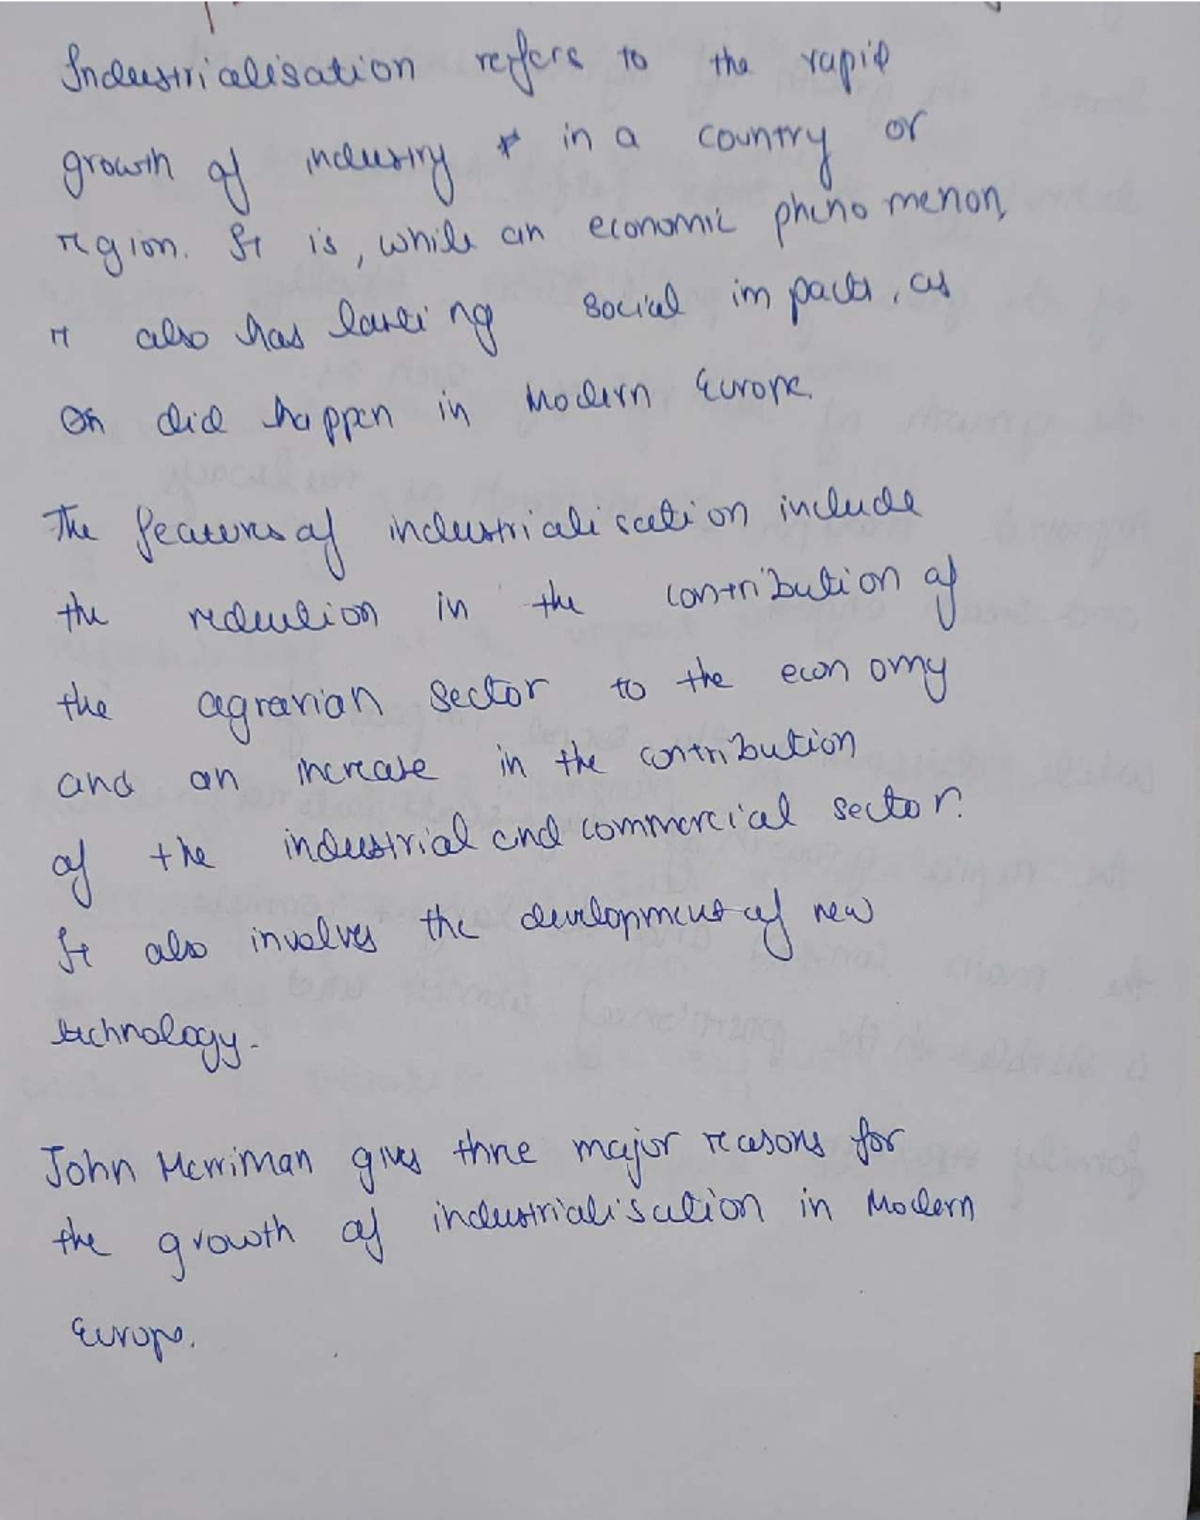 Industrialisation refers to the rapid
growth of industry in a country or
region. It is, while an economic phenomenon,
it also has lasting social impacts, as
did happen in Modern Europe.
The features of industrialisation include
the reduction in the contribution of
the agrarian sector to the economy
and an increase in the contribution
of the industrial and commercial sector.
It also involves the development of new
technology.
John Merriman gives three major reasons for
the growth of industrialisation in Modern
Europe.